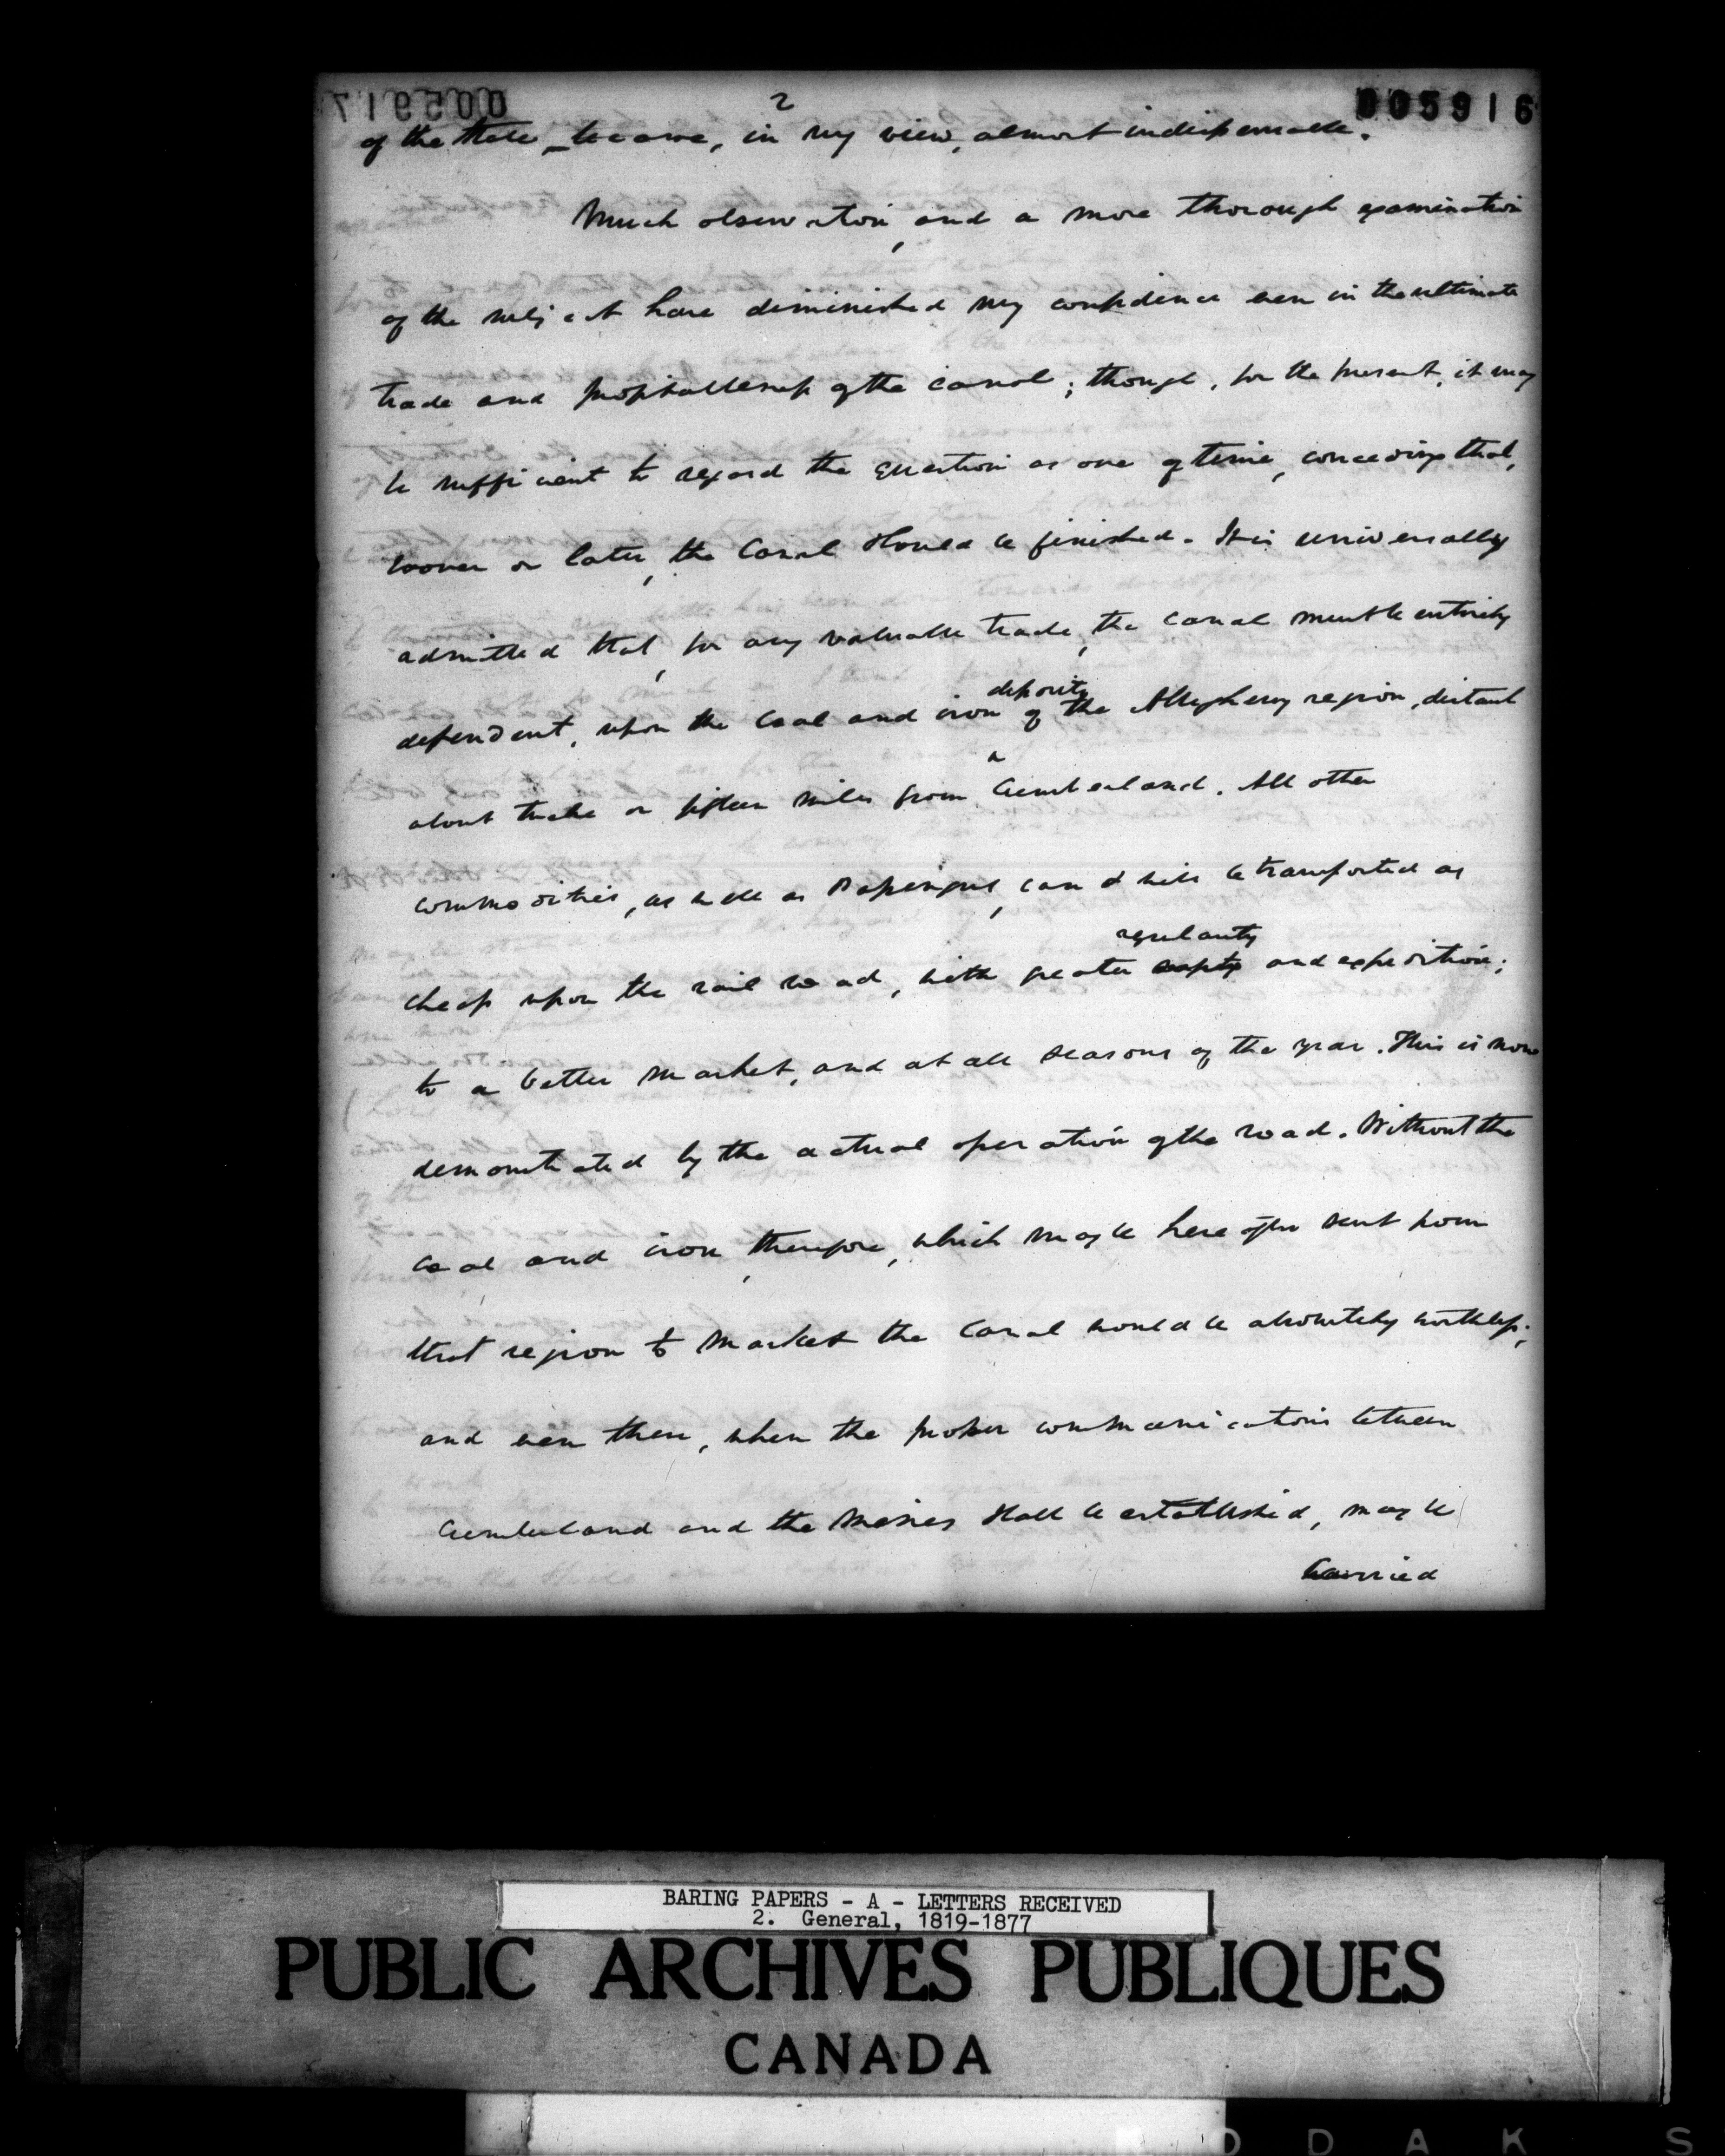 2
005916
005917
of the State, became, in my view, almost indispensable.
Much observation, and a more thorough examination
of the subject have diminished my confidence even in the ultimate
trade and profitableness of the canal; though, for the present, it may
be sufficient to regard the question as one of time, conceding that,
sooner or later, the Canal should be finished. It is universally
admitted that, for any valuable trade, the canal must be entirely
deposits
dependent, upon the coal and iron of the Allegheny region, distant
about twelve or fifteen miles from Cumberland. All other
commodities, as well as Passengers, can & will be transported as
regularity
cheap upon the rail road, with greater and expedition;
to a better market, and at all seasons of the year. This is now
demonstrated by the actual operation of the road. Without the
coal and iron, therefore, which may be hereafter sent from
that region to market the Canal would be absolutely worthless;
and even these, when the proper communications between
Cumberland and the Mines shall be established, may be
carried
BARING PAPERS - A - LETTERS RECEIVED
2. General, 1819-1877
PUBLIC ARCHIVES PUBLIQUES
CANADA
D A K S